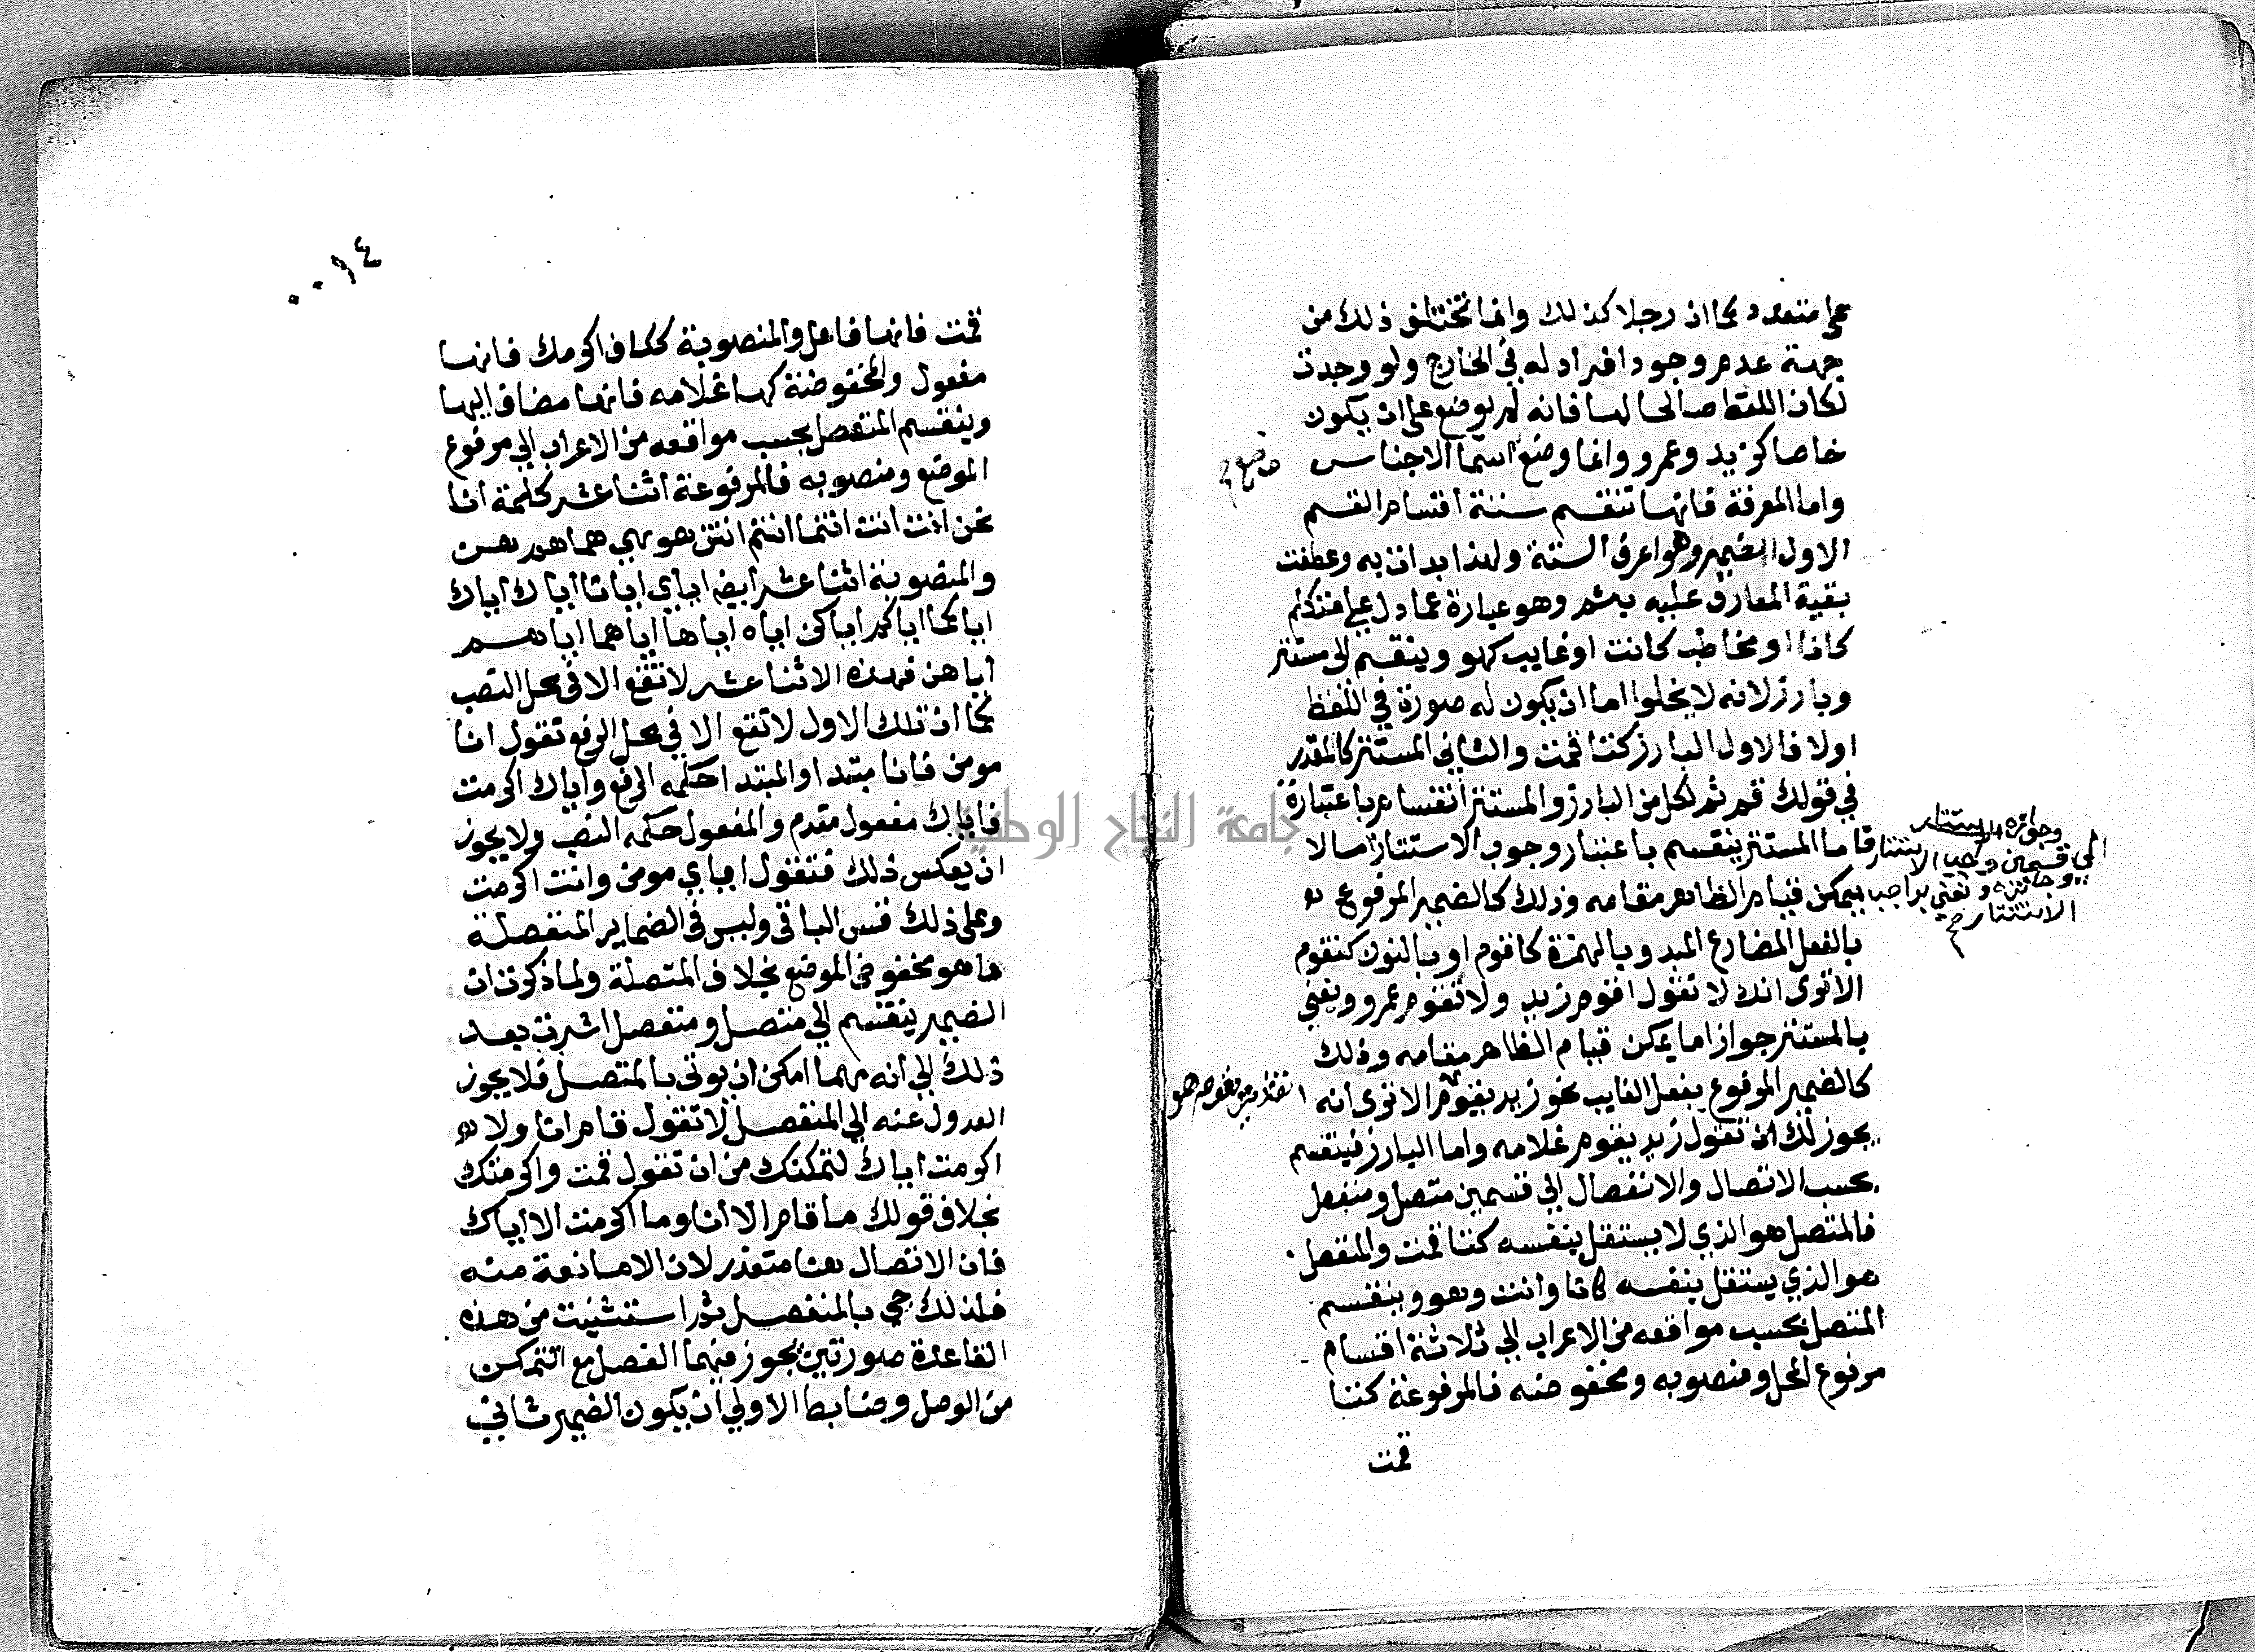 على متعدد كما ان رجلا كذلك وانما تختلف ذلك من
جهة عدم وجود افراد له في الخارج ولو وجدت
لكان اللفظ صالحا لها فانه لم يوضع على ان يكون
خاصا كزيد وعمرو وانما وضع اسما الاجناس
واما المعرفة فانها تنقسم ستة اقسام القسم
الاول الضمير وهو اعرف الستة ولهذا بدات به وعطفت
بقية المعارف عليه بثم وهو عبارة عما دل على متكلم
كانا او مخاطب كانت او غايب كهو وينقسم الى مستتر
وبارز لانه لا يخلوا اما ان يكون له صورة في اللفظ
اولا فالاول البارز كتا قمت والثاني المستتر كالمقدر
في قولك قم ثم لكل من البارز والمستتر انقسام باعتبار
فاما المستتر ينقسم باعتبار وجوب الاستتار ما لا
الى قسمين واجب الاستتار
وجائزه ونعني بواجب
الاستتار
يمكن قيام الظاهر مقامه وذلك كالضمير المرفوع
بالفعل المضارع المبدو بالهمزة كاقوم او بالنون كنقوم
الاترى انك لا تقول اقوم زيد ولا تقوم عمرو ويعني
بالمستتر جوازا ما يمكن قيام الظاهر مقامه وذلك
كالضمير المرفوع بفعل الغايب نحو زيد يقوم الا ترى انه
يجوز لك ان تقول زيد يقوم غلامه واما البارز فينقسم
بحسب الاتصال والانفصال الى قسمين متصل ومنفصل
فالمتصل هو الذي لا يستقل بنفسه كتا قمت والمنفصل
هو الذي يستقل بنفسه كانا وانت وهو وينقسم
المتصل بحسب مواقعه من الاعراب الى ثلاثة اقسام
مرفوع المحل ومنصوبه ومخفوضه فالمرفوعة كتا
قمت
٠٠١٤
قمت فانها فاعل والمنصوبة ككاف اكرمك فانها
مفعول والمخفوضة كها غلامه فانها مضاف اليها
وينقسم المنفصل بحسب مواقعه من الاعراب الى مرفوع
الموضع ومنصوبه فالمرفوعة اثنا عشر كلمة انا
نحن انت انت انتما انتم انتن هو هي هما هم هن
والمنصوبة اثنا عشر ايضا اياي ايانا اياك اياك
اياكما اياكم اياكن اياه اياها اياهما اياهم
اياهن فهذه الاثنا عشر لا تقع الا في محل النصب
كما ان تلك الاول لا تقع الا في محل الرفع تقول انا
مومن فانا مبتدا والمبتدا حكمه الرفع واياك اكرمت
فاياك مفعول مقدم والمفعول حكمه النصب ولا يجوز
ان يعكس ذلك فتقول اياي مومن وانت اكرمت
وعلى ذلك فقس الباقي وليس في الضماير المنفصلة
ما هو مخفوض الموضع بخلاف المتصلة ولما ذكرت ان
الضمير ينقسم الى متصل ومنفصل اشرت بعد
ذلك الى انه مهما امكن ان يوتى بالمتصل فلا يجوز
العدول عنه الى المنفصل لا تقول قام انا ولا
اكرمت اياك لتمكنك من ان تقول قمت واكرمتك
بخلاف قولك ما قام الا انا وما اكرمت الا اياك
فان الاتصال هنا متعذر لان الا مانعة منه
فلذلك جي بالمنفصل ثم استثنيت من هذه
القاعدة صورتين يجوز فيهما الفصل مع التمكن
من الوصل وضابط الاولى ان يكون الضمير ثاني
جامعة النجاح الوطنية